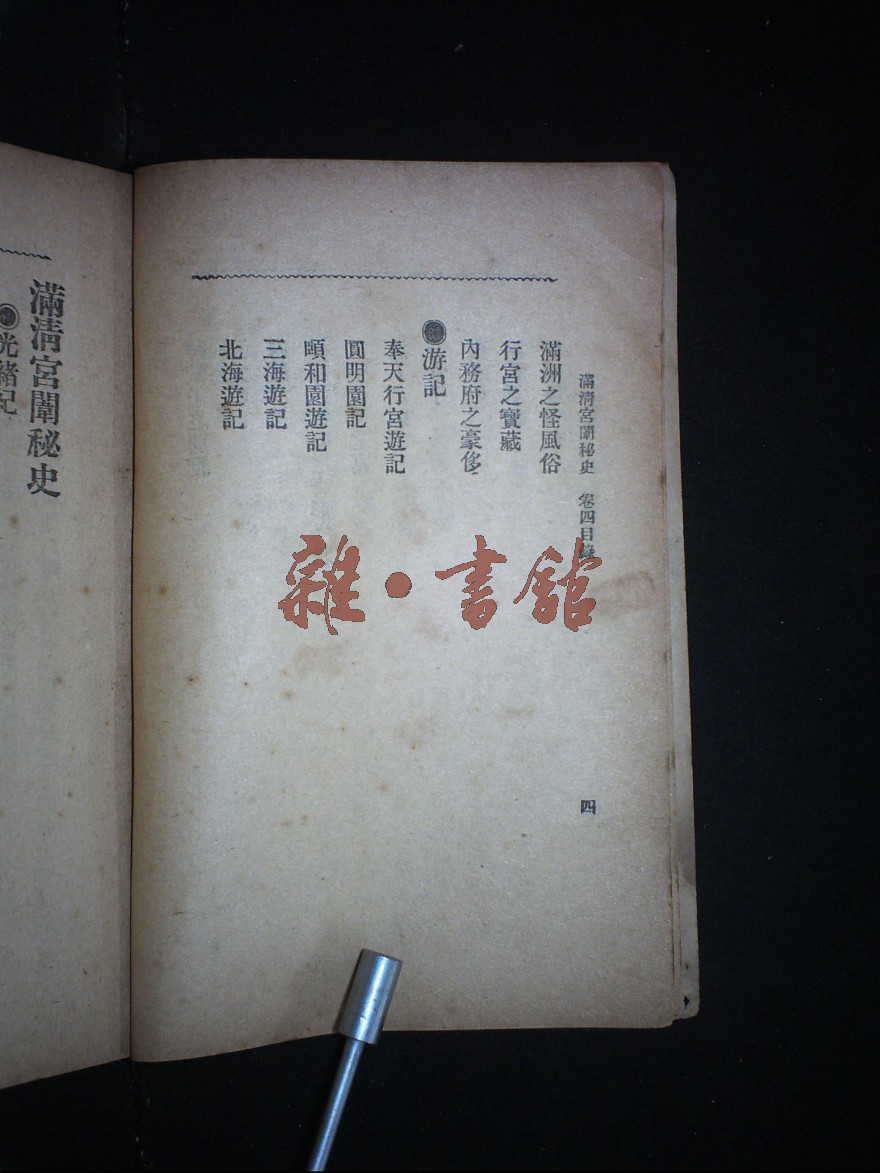 滿清宮闈秘史 卷四目錄
四
滿洲之怪風俗
行宮之寶藏
內務府之豪侈
●游記
奉天行宮遊記
圓明園記
頤和園遊記
三海遊記
北海遊記
滿清宮闈秘史
●光緒紀
雜·書館